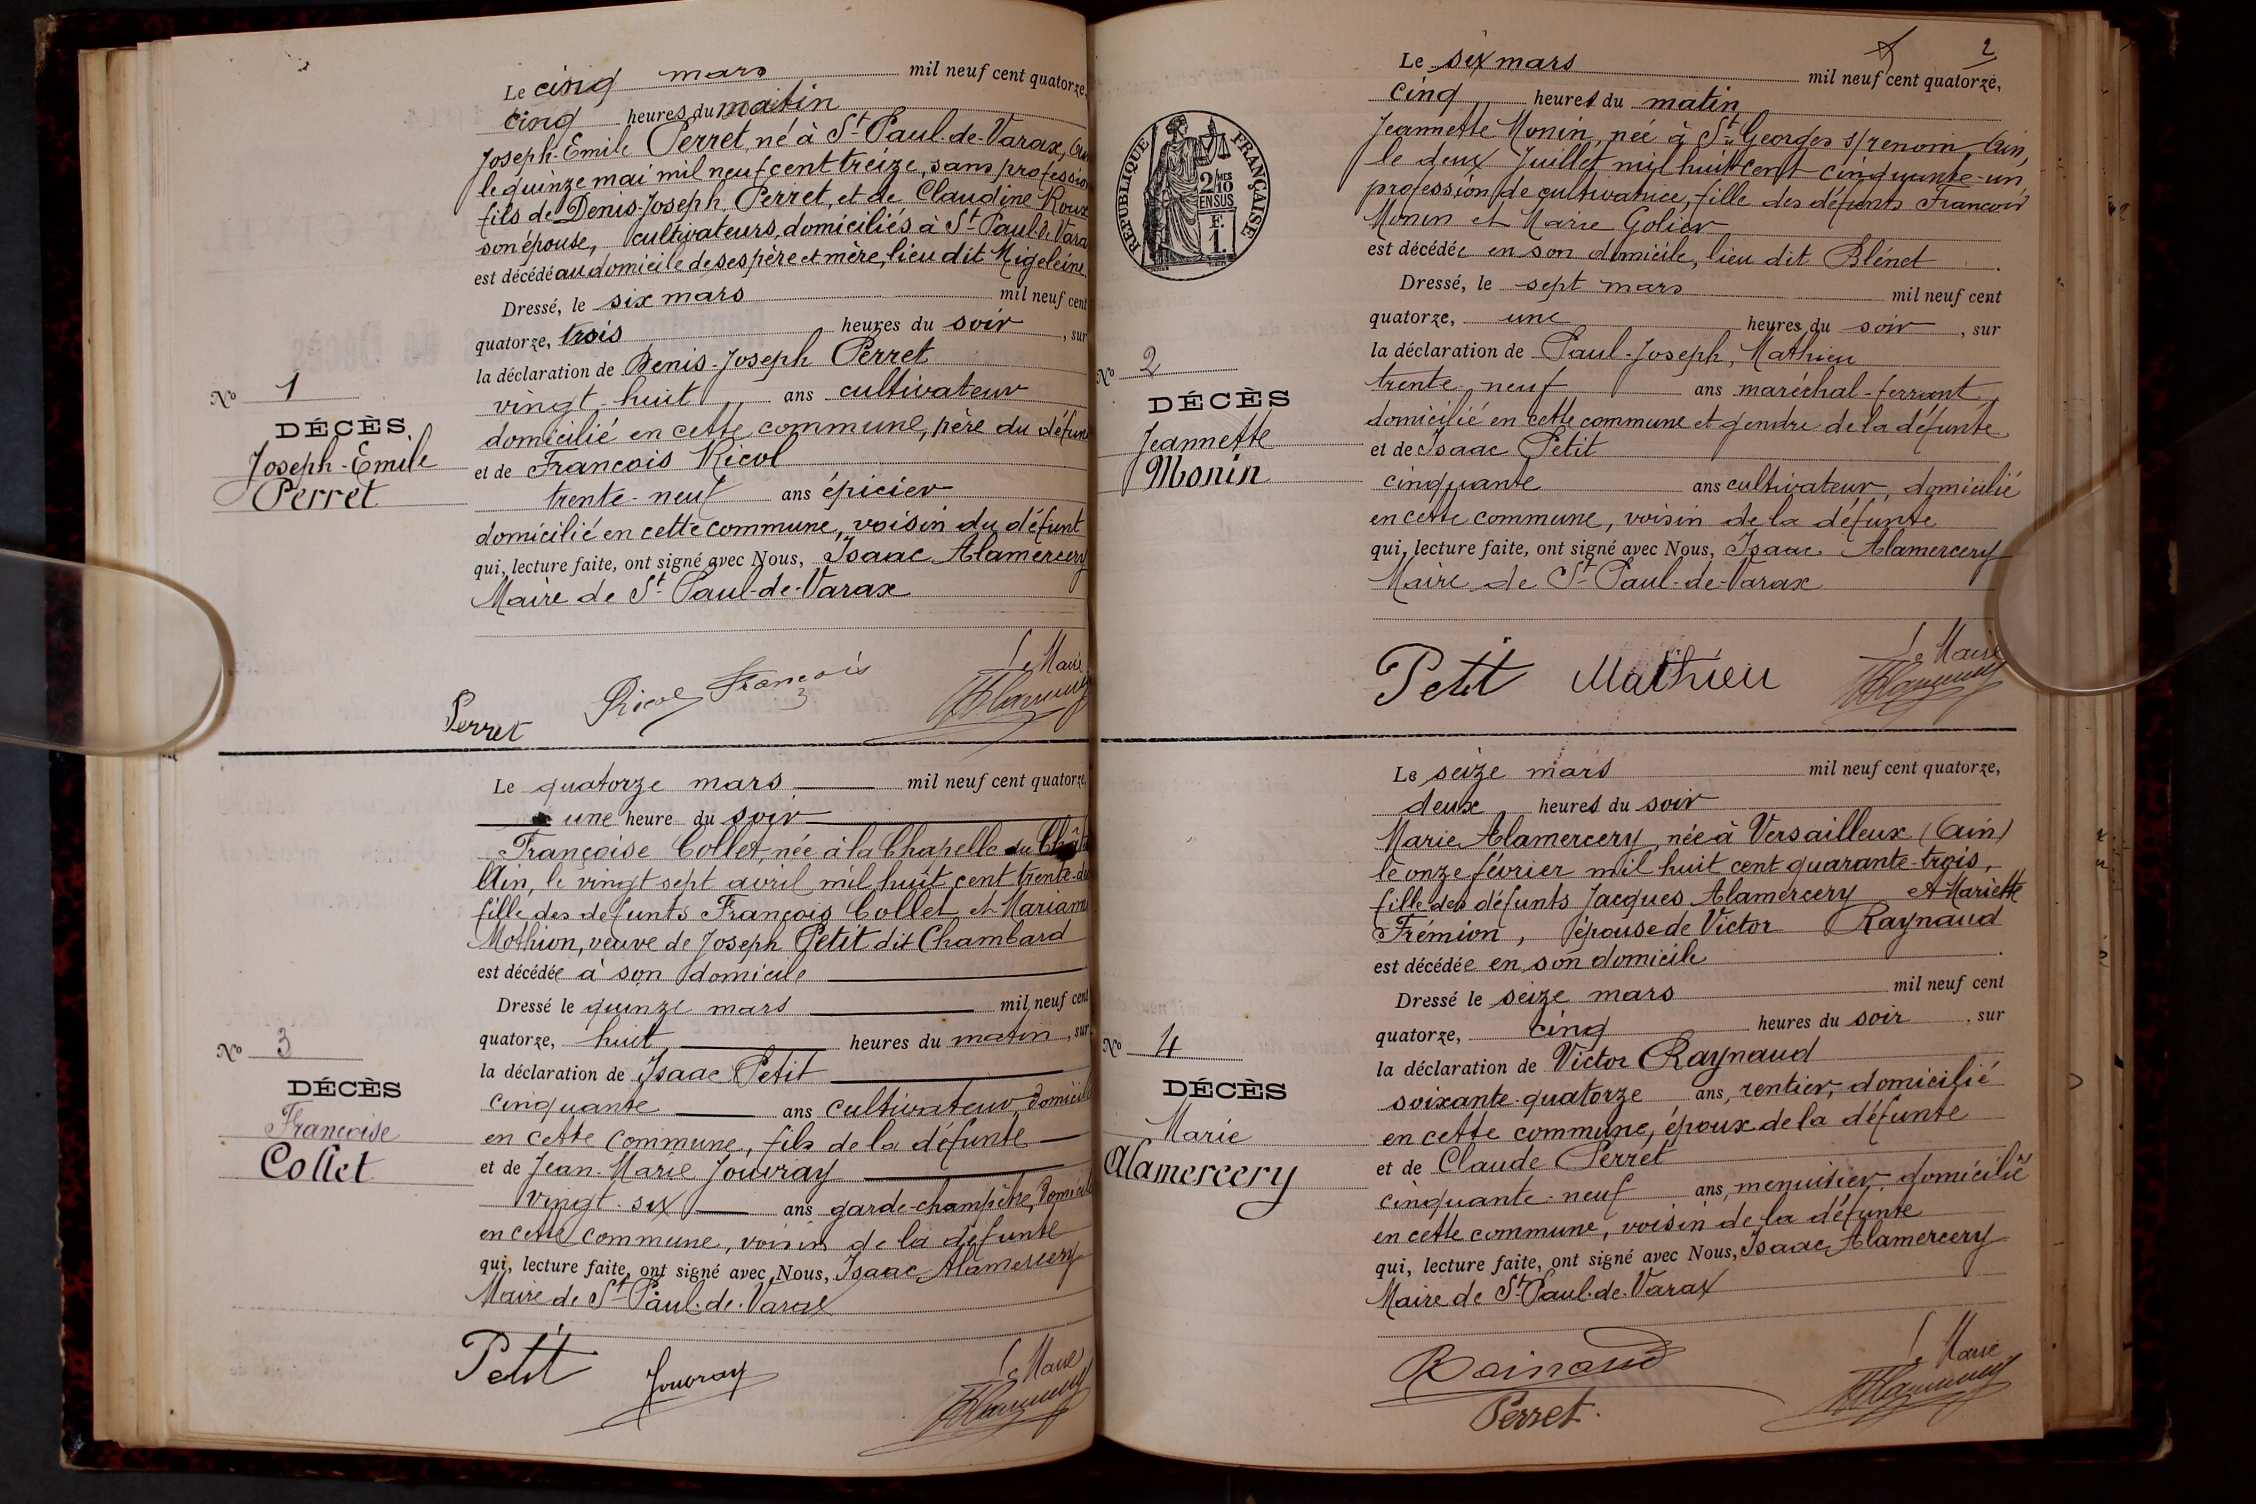 Le cinq mars mil neuf cent quatorze,
cinq heures du matin
Joseph-Emile Perret, né à St Paul-de-Varax,
le quinze mai mil neuf cent treize, sans profession
fils de Denis-Joseph Perret, et de Claudine Roux
son épouse, cultivateurs, domiciliés à St Paul-de-Vara
est décédé au domicile de ses père et mère, lieu dit Migeleine
Dressé, le six mars mil neuf cent
quatorze, trois heures du soir, sur
la déclaration de Denis-Joseph Perret
vingt-huit ans cultivateur
domicilié en cette commune, père du défun
et de François Ricol
trente-neuf ans épicier
domicilié en cette commune, voisin du défunt
qui, lecture faite, ont signé avec Nous, Isaac Alamercery
Maire de St Paul-de-Varax
No 1
DÉCÈS
Joseph-Emile
Perret
Le Maire
Perret Ricol François
Le quatorze mars mil neuf cent quatorze,
une heure du soir
Françoise Collet, née à la Chapelle du
Ain, le vingt-sept avril mil huit cent trente-d
fille des défunts François Collet et Mariann
Mothion, veuve de Joseph Petit dit Chambard
est décédée à son domicile
Dressé le quinze mars mil neuf cent
quatorze, huit heures du matin, sur
la déclaration de Isaac Petit
cinquante ans cultivateur, domicilié
en cette commune, fils de la défunte
et de Jean-Marie Jouvray
vingt-six ans garde-champêtre, domicilié
en cette commune, voisin de la défunte
qui, lecture faite, ont signé avec Nous, Isaac Alamercery
Maire de St Paul-de-Varax
No 3
DÉCÈS
Françoise
Collet
Le Maire
Petit Jouvray
2
Le six mars mil neuf cent quatorze,
cinq heures du matin
Jeannette Monin, née à St Georges s/renom Ain,
le deux Juillet mil huit cent cinquante-un
profession de cultivatrice, fille des défunts François
Monin et Marie Golier
est décédée en son domicile, lieu dit Blénet
Dressé, le sept mars mil neuf cent
quatorze, une heures du soir, sur
la déclaration de Paul-Joseph, Mathieu
trente-neuf ans maréchal-ferrant,
domicilié en cette commune et gendre de la défunte
et de Isaac Petit
cinquante ans cultivateur, domicilié
en cette commune, voisin de la défunte
qui, lecture faite, ont signé avec Nous, Isaac Alamercery
Maire de St Paul-de-Varax
RÉPUBLIQUE FRANÇAISE
2/10 MES
EN SUS
F.
1.
No 2
DÉCÈS
Jeannette
Monin
Le Maire
Petit Mathieu
Le seize mars mil neuf cent quatorze,
deux heures du soir
Marie Alamercery, née à Versailleux (Ain)
le onze février mil huit cent quarante-trois,
fille des défunts Jacques Alamercery et Mariette
Frémion, épouse de Victor Raynaud
est décédée en son domicile
Dressé le seize mars mil neuf cent
quatorze, cinq heures du soir, sur
la déclaration de Victor Raynaud
soixante-quatorze ans, rentier, domicilié
en cette commune, époux de la défunte
et de Claude Perret
cinquante-neuf ans, menuisier, domicilié
en cette commune, voisin de la défunte
qui, lecture faite, ont signé avec Nous, Isaac Alamercery
Maire de St Paul-de-Varax
No 4
DÉCÈS
Marie
Alamercery
Le Maire
Rainaud
Perret